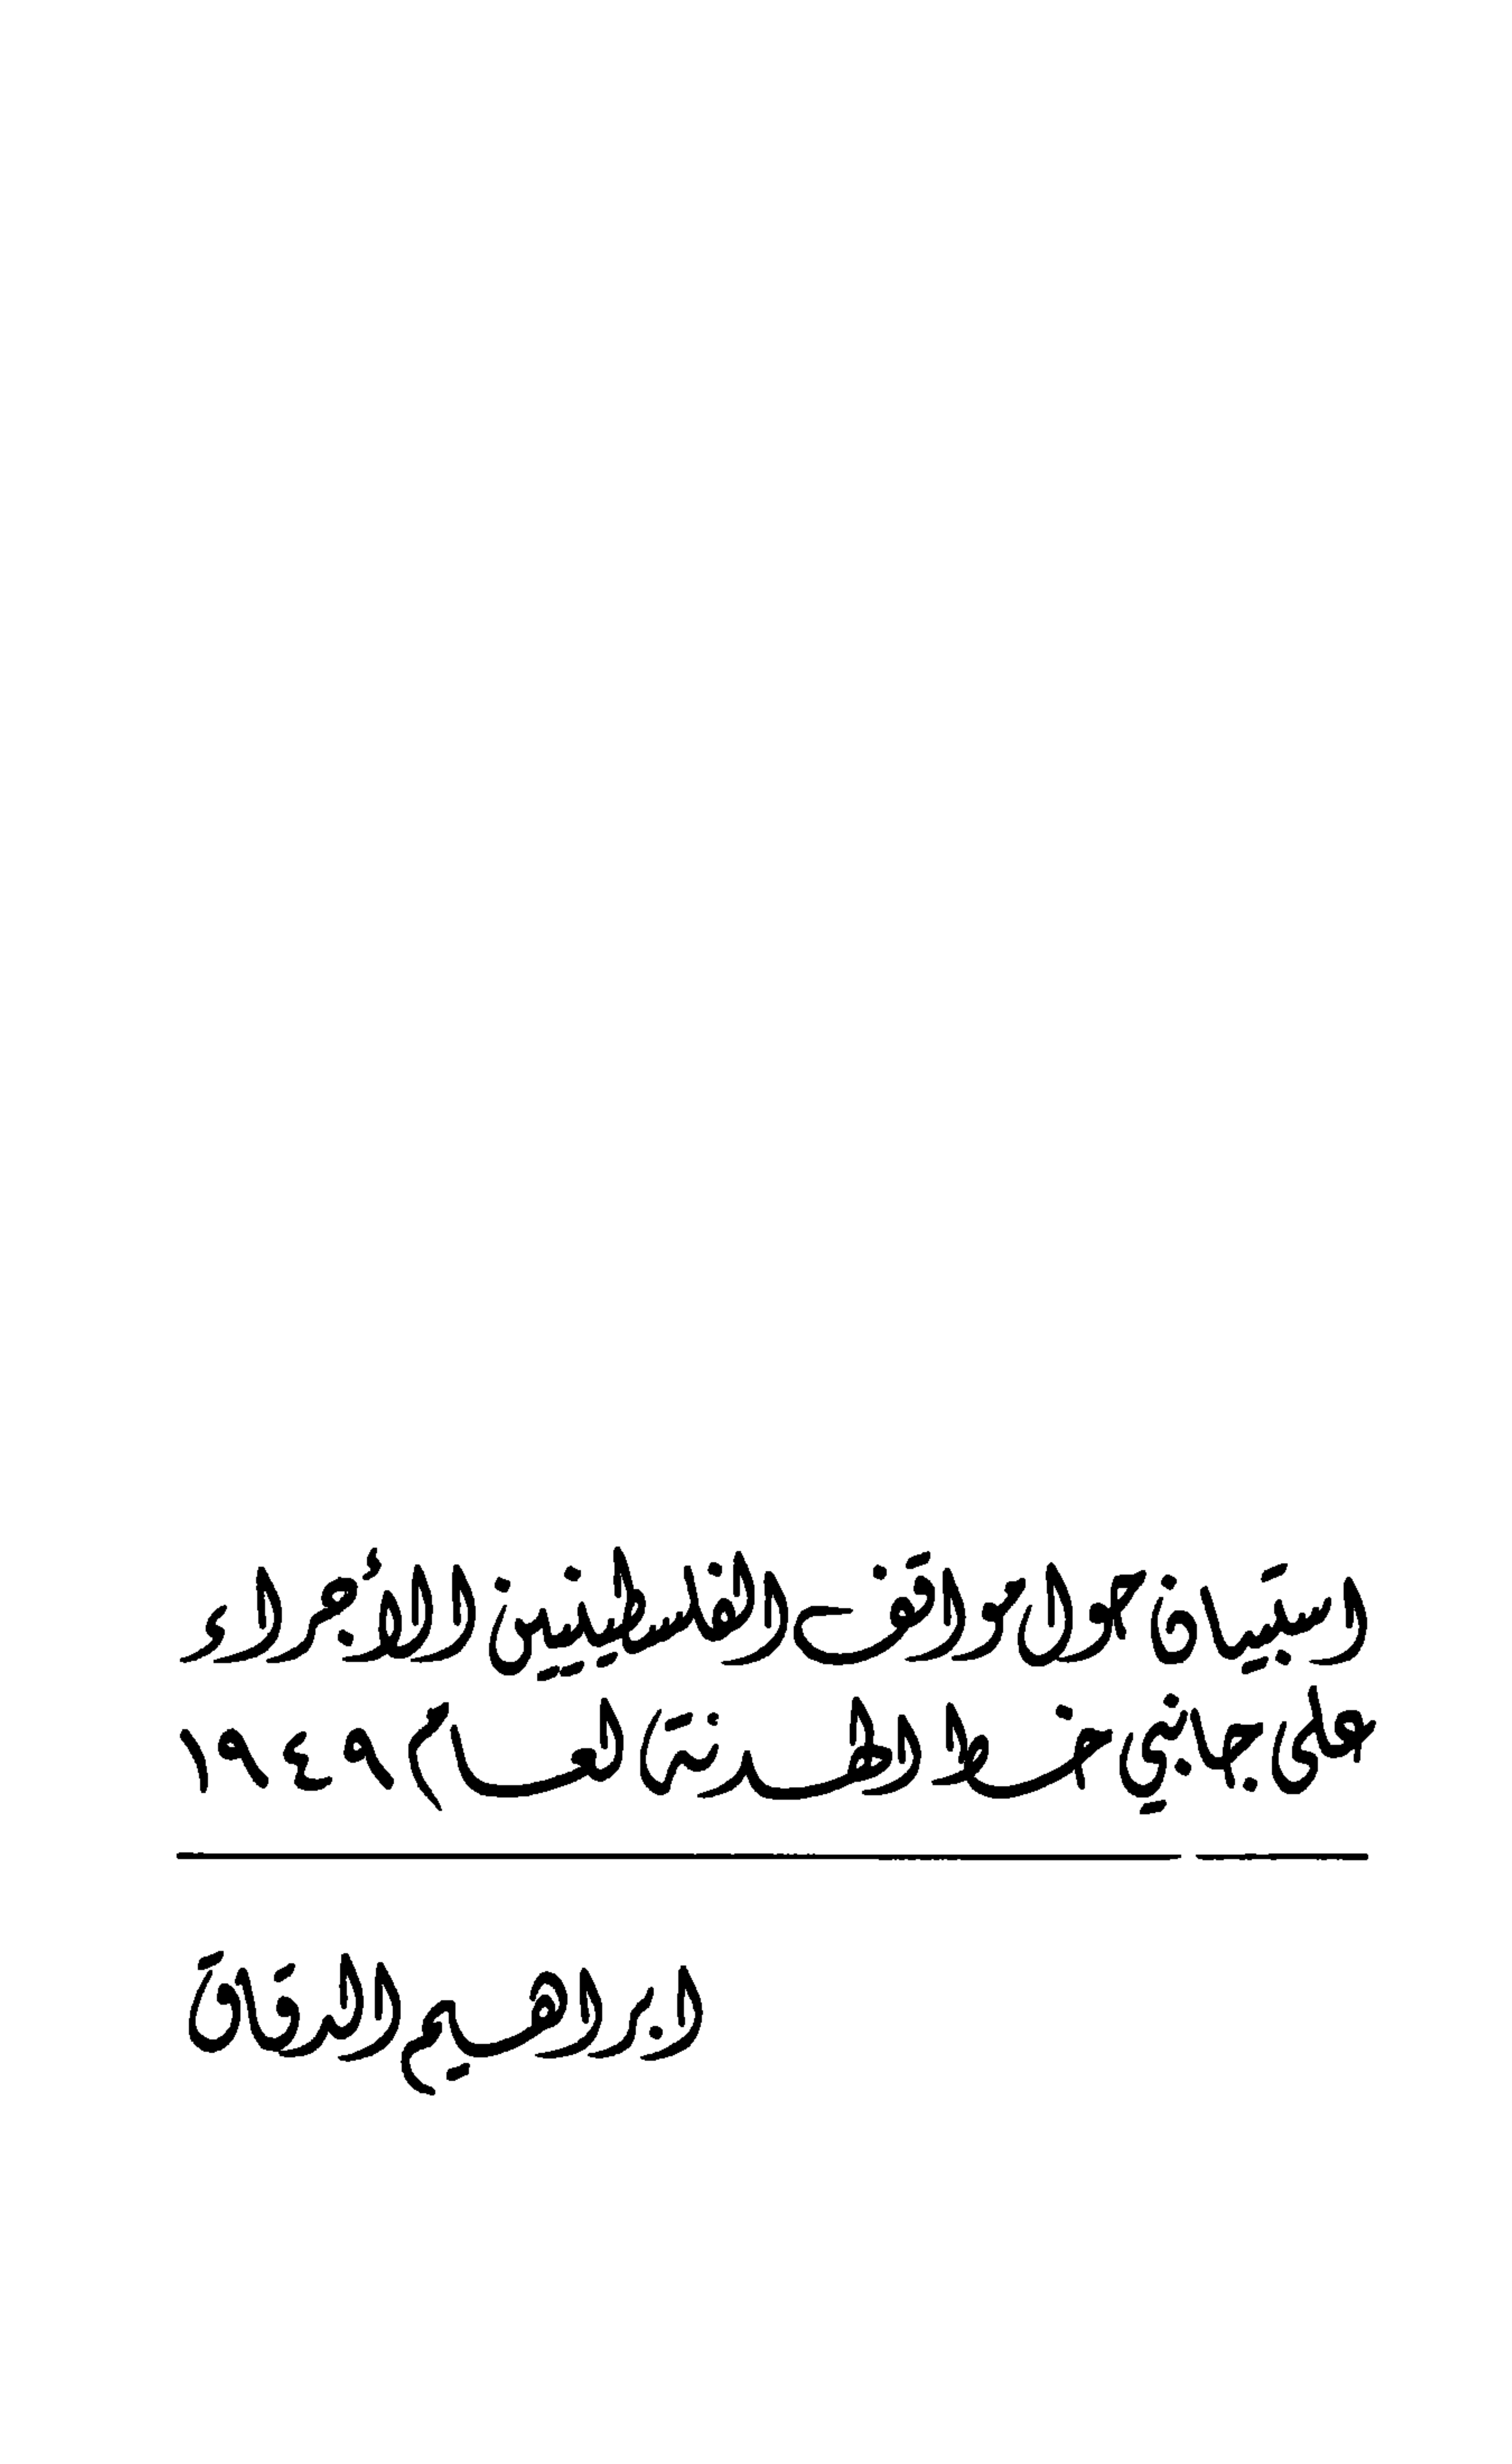 استبيان حول مواقف الفلسطينيين الأجراء
على جانبي خط الهدنة لعام ١٩٤٩
ابراهيم الدقاق